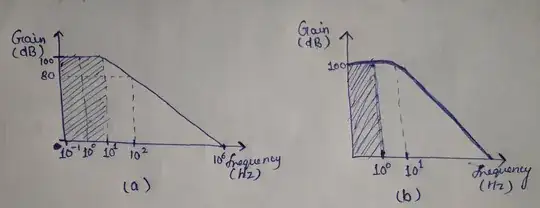 Gain
(dB)
100
80
10⁻¹ 10⁰ 10¹ 10² 10⁶ frequency
(Hz)
(a)
Gain
(dB)
100
10⁰ 10¹ frequency
(Hz)
(b)